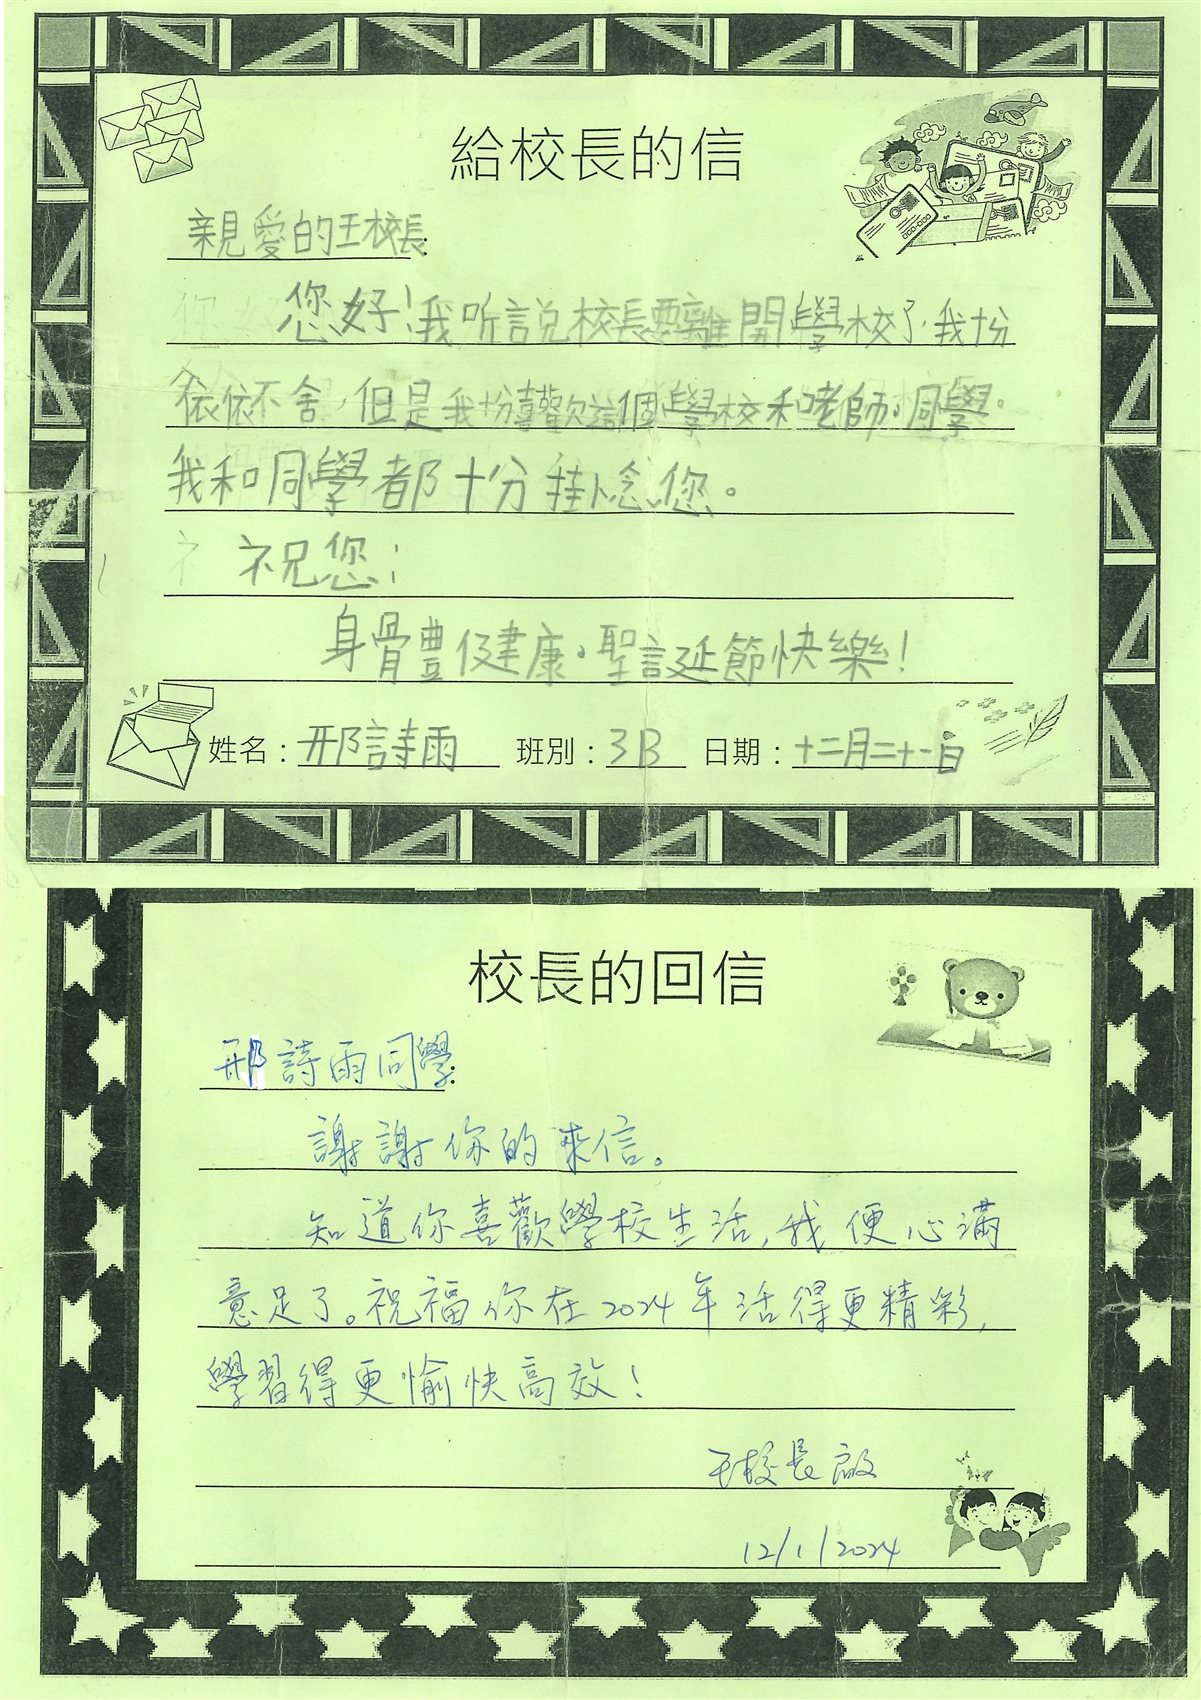 給校長的信
親愛的王校長:
您好!我听說校長要離開學校了,我十分
依依不舍,但是我十分喜歡這個學校和老師、同學。
我和同學都十分掛念您。
祝您:
身骨豊健康。聖誕節快樂!
姓名:邢詩雨 班別:3B 日期:十二月二十一日
校長的回信
邢詩雨同學:
謝謝你的來信。
知道你喜歡學校生活,我便心滿
意足了。祝福你在2024年活得更精彩,
學習得更愉快高效!
王校長啟
12/1/2024